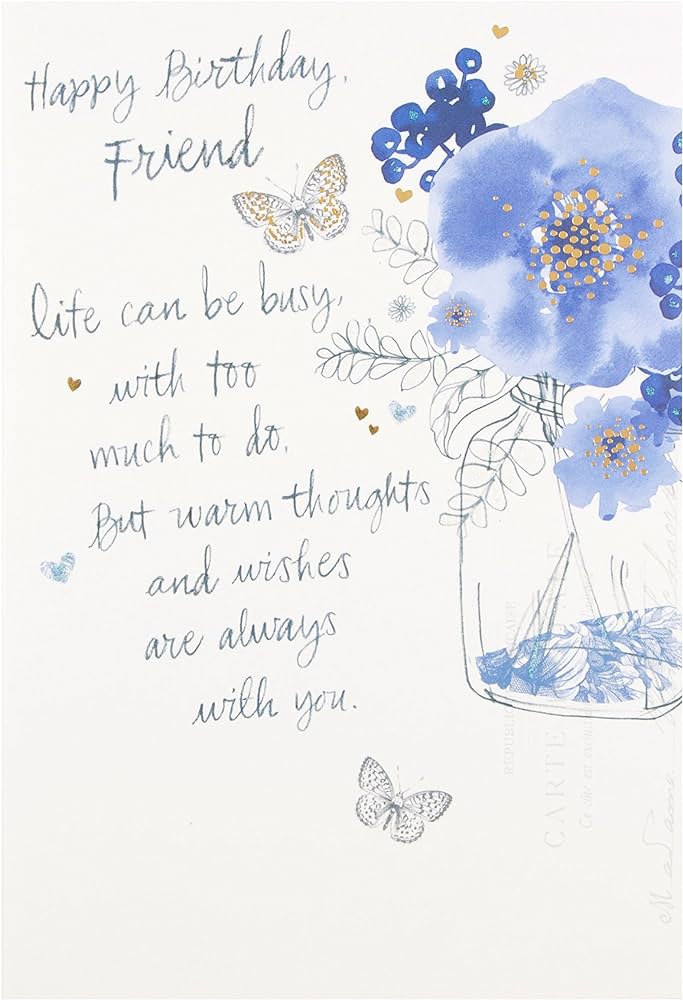 Happy Birthday,
Friend
life can be busy,
with too
much to do.
But warm thoughts
and wishes
are always
with you.
CARTE
Madame